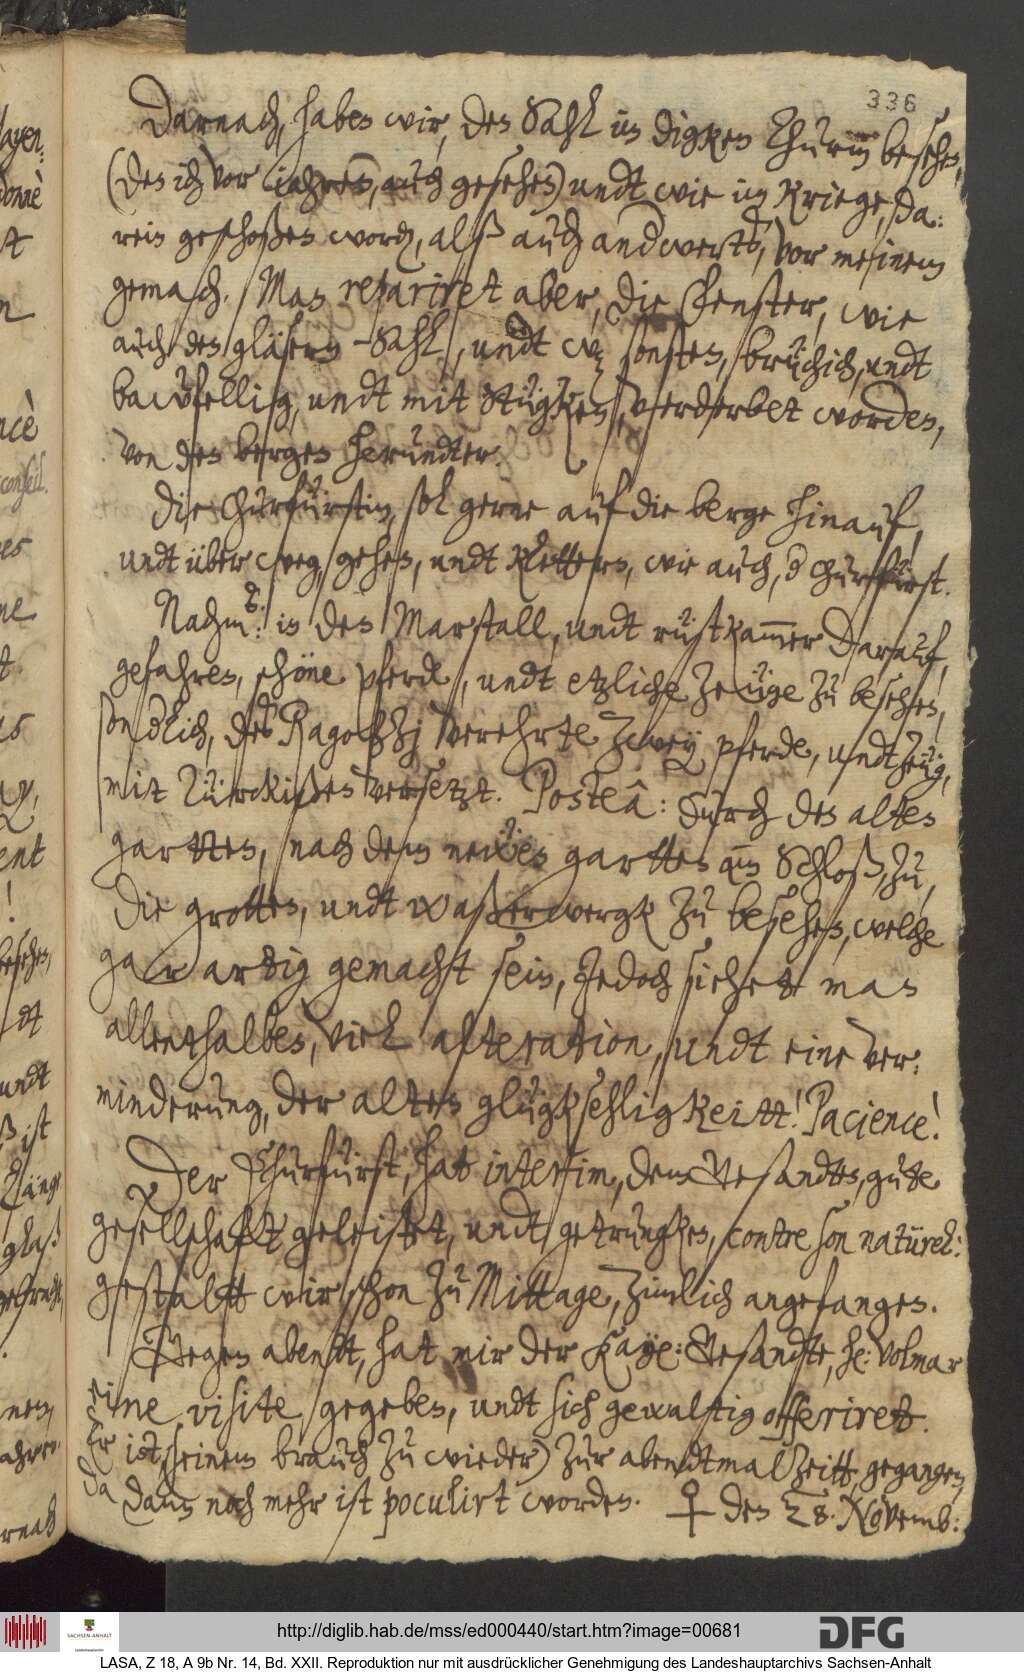 336
Darnach, haben wir, den Sahl im digken Thurm besehen,
(den ich vor iahren, auch gesehen) undt wie im kriege, da:
rein geschoßen word, alß auch andwerts, vor meinem
gemach. Man repariret aber, die Fenster, wie
auch den gläsern-Sahl, undt wz sonsten, brüchich, undt
bawfellig, undt mit stügken, verderbet worden,
von den bergen herundter.
Die Churfürstin, sol gerne auf die berge hinauf,
undt über weg, gehen, undt klettern, wie auch, d Churfürst.
Nachm: in den Marstall, undt rüstkammer darauf,
gefahren, schöne pferde, undt etzliche zeüge zu besehen,
sondlich, des Ragotzzj verehrte zwey pferde, undt zeüg,
mit Türckißen versetzt. Posteâ: durch den alten
gartten, nach dem newen gartten am Schloß, zu,
die grotten, undt waßerwergk zu besehen, welche
gar artig gemacht sein, Jedoch siehet man
allenthalben, viel alteration, undt eine ver:
minderung, der alten glügksehligkeitt! Pacience!
Der Churfürst, hat interim, dem Gesandten, gute
gesellschaft geleistet, undt getrungken, contre son naturel:
gestaltt wir schon zu Mittage, zimlich angefangen.
Gegen abendt, hat mir der Kaye: Gesandte, he: Volmar
eine visite gegeben, undt sich gewaltig offeriret.
Er ist, (seinem brauch zu wieder) zur abendtmalzeitt gegangen
da dann noch mehr ist poculirt worden. ♀ den 28. Novemb:
http://diglib.hab.de/mss/ed000440/start.htm?image=00681
DFG
SACHSEN-ANHALT
LASA, Z 18, A 9b Nr. 14, Bd. XXII. Reproduktion nur mit ausdrücklicher Genehmigung des Landeshauptarchivs Sachsen-Anhalt